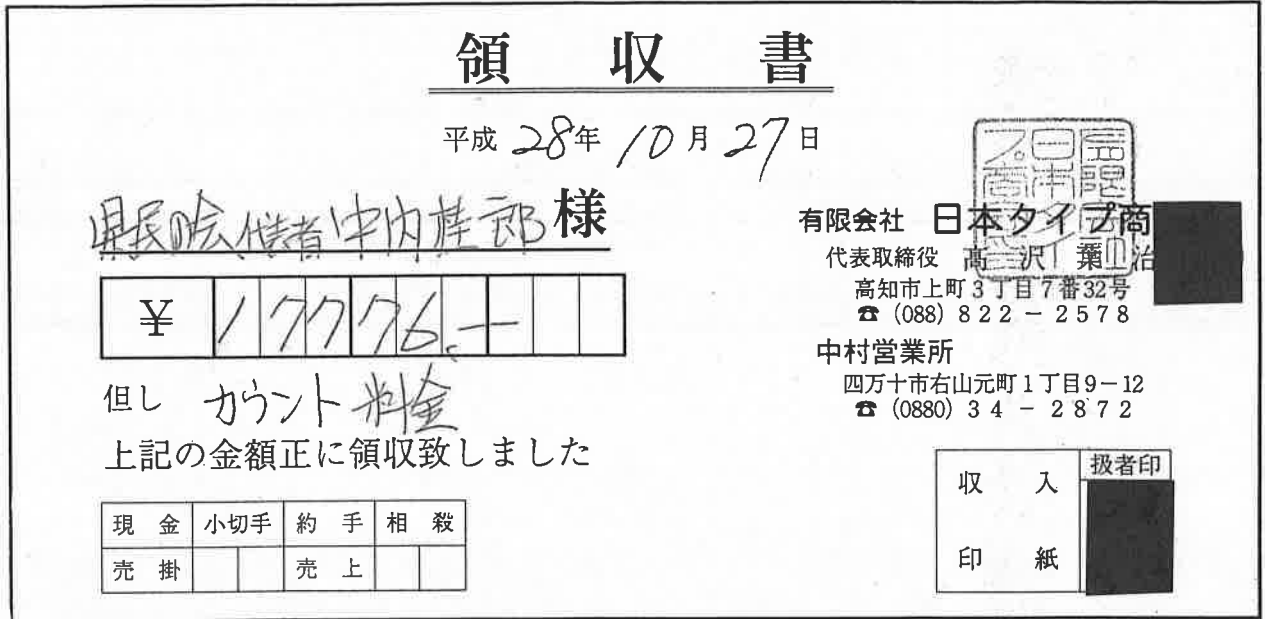 領収書
平成 28年 10月 27日
県民の会 代表者 中内桂郎 様
¥ 17776.—
但し カウント料金
上記の金額正に領収致しました
現金 小切手 約手 相殺
売掛 売上
有限会社 日本タイプ商
代表取締役 髙沢葉治
高知市上町3丁目7番32号
☎ (088) 822-2578
中村営業所
四万十市右山元町1丁目9-12
☎ (0880) 34-2872
収入
印紙
扱者印